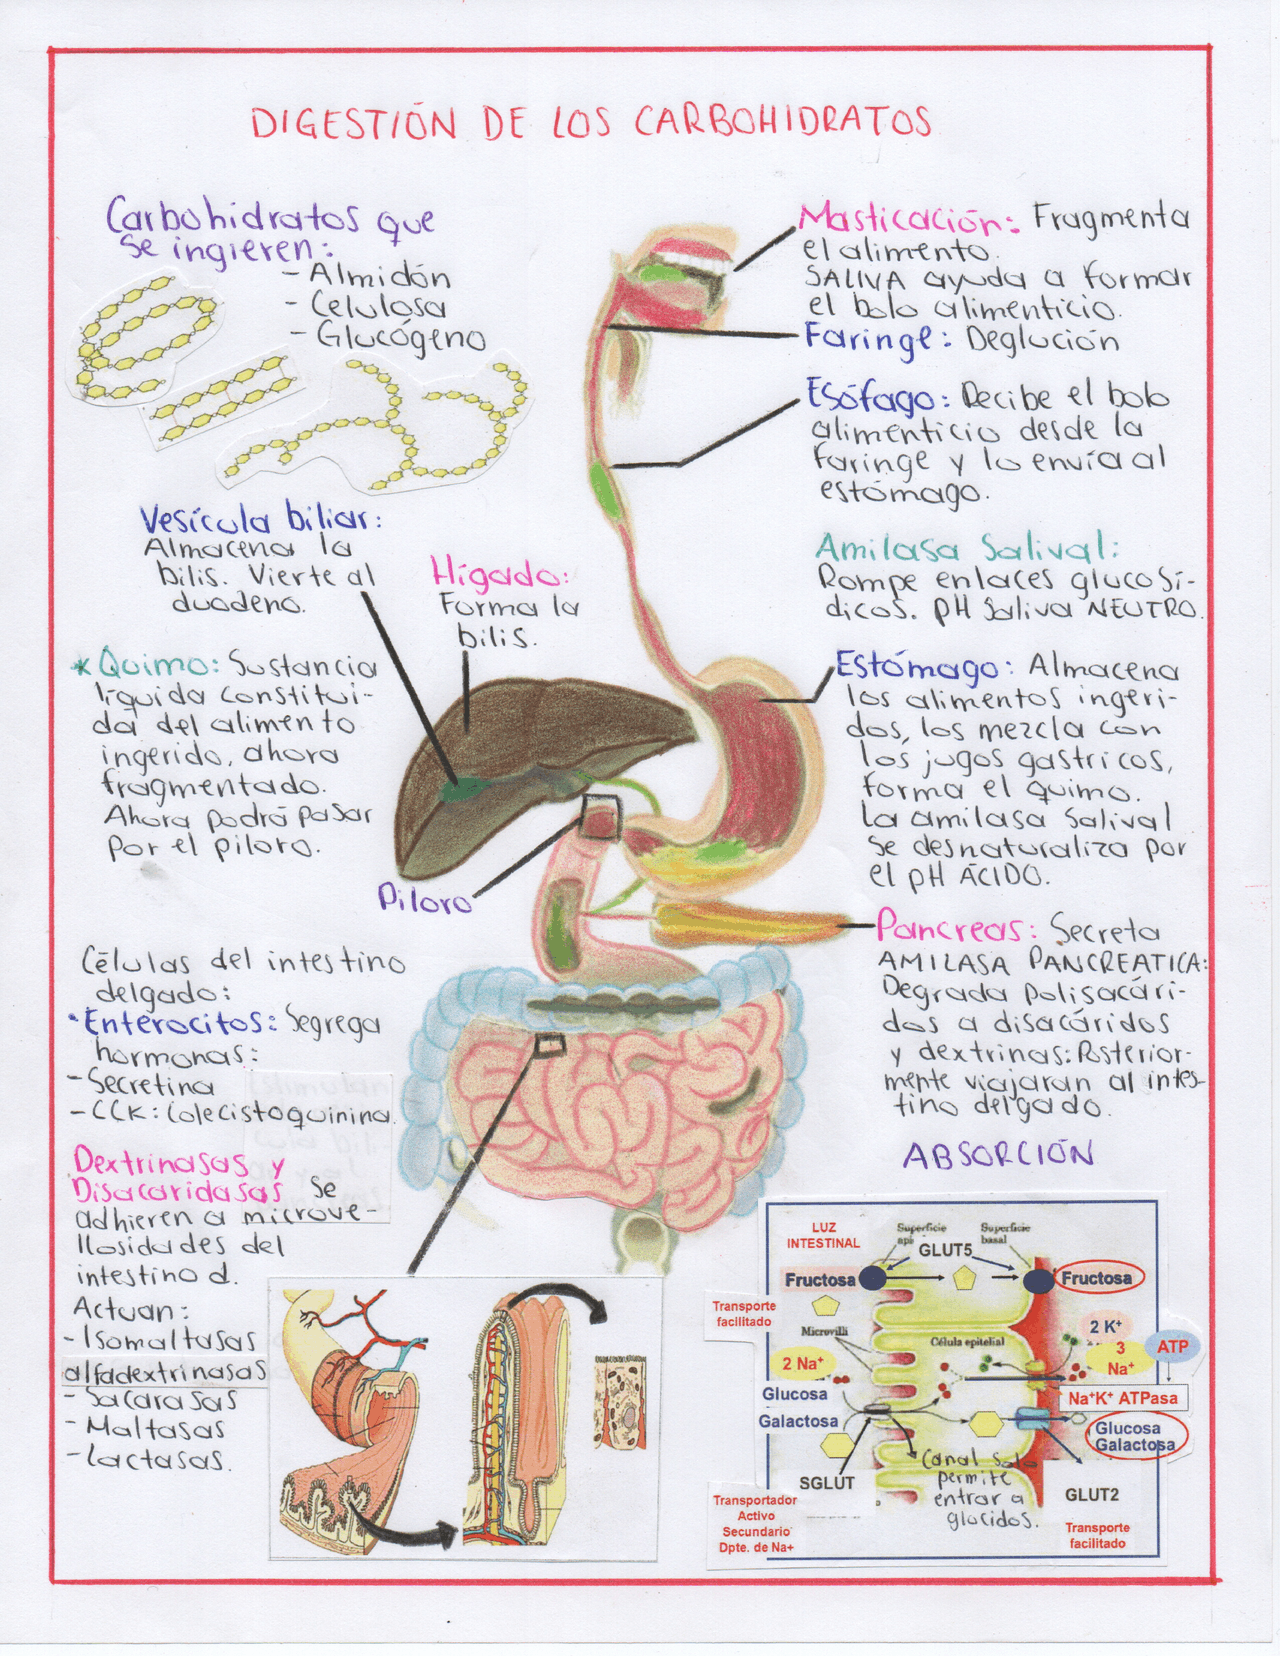 DIGESTIÓN DE LOS CARBOHIDRATOS
Carbohidratos que
se ingieren:
- Almidón
- Celulosa
- Glucógeno
Masticación: Fragmenta
el alimento.
SALIVA ayuda a formar
el bolo alimenticio.
Faringe: Deglución
Esófago: Recibe el bolo
alimenticio desde la
faringe y lo envía al
estómago.
Vesícula biliar:
Almacena la
bilis. Vierte al
duodeno.
Hígado:
Forma la
bilis.
Amilasa Salival:
Rompe enlaces glucosí-
dicos. pH Saliva NEUTRO.
* Quimo: Sustancia
líquida constitui-
da del alimento
ingerido, ahora
fragmentado.
Ahora podrá pasar
por el piloro.
Estómago: Almacena
los alimentos ingeri-
dos, los mezcla con
los jugos gastricos,
forma el quimo.
La amilasa Salival
se desnaturaliza por
el pH ÁCIDO.
Piloro
Pancreas: Secreta
AMILASA PANCREATICA:
Degrada polisacári-
dos a disacáridos
y dextrinas: Posterior-
mente viajaran al intes-
tino delgado.
Células del intestino
delgado:
• Enterocitos: Segrega
hormonas:
- Secretina
- CCK: Colecistoquinina.
Dextrinasas y
Disacaridasas se
adhieren a microve-
llosidades del
intestino d.
Actuan:
- Isomaltasas
alfadextrinasas
- Sacarasas
- Maltasas
- Lactasas.
ABSORCIÓN
LUZ
INTESTINAL
Superficie
Superficie
basal
GLUT5
Fructosa
Fructosa
Transporte
facilitado
Microvilli
Célula epitelial
2 K+
3
Na+
ATP
2 Na+
Na+K+ ATPasa
Glucosa
Galactosa
Glucosa
Galactosa
SGLUT
Canal solo
permite
entrar a
glucidos.
GLUT2
Transportador
Activo
Secundario
Dpte. de Na+
Transporte
facilitado